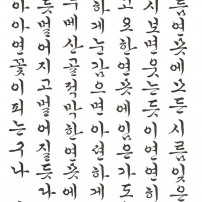 름 연못에 모든 시름 잊은
시 보면 웃는 듯이 연히
고요한 연못에 임은 가도
하게 눈감으면 아련하게
두메산골 적막한 연못에
듯 멀어지고 멀어질듯 나
아 아 연꽃이 피는구나